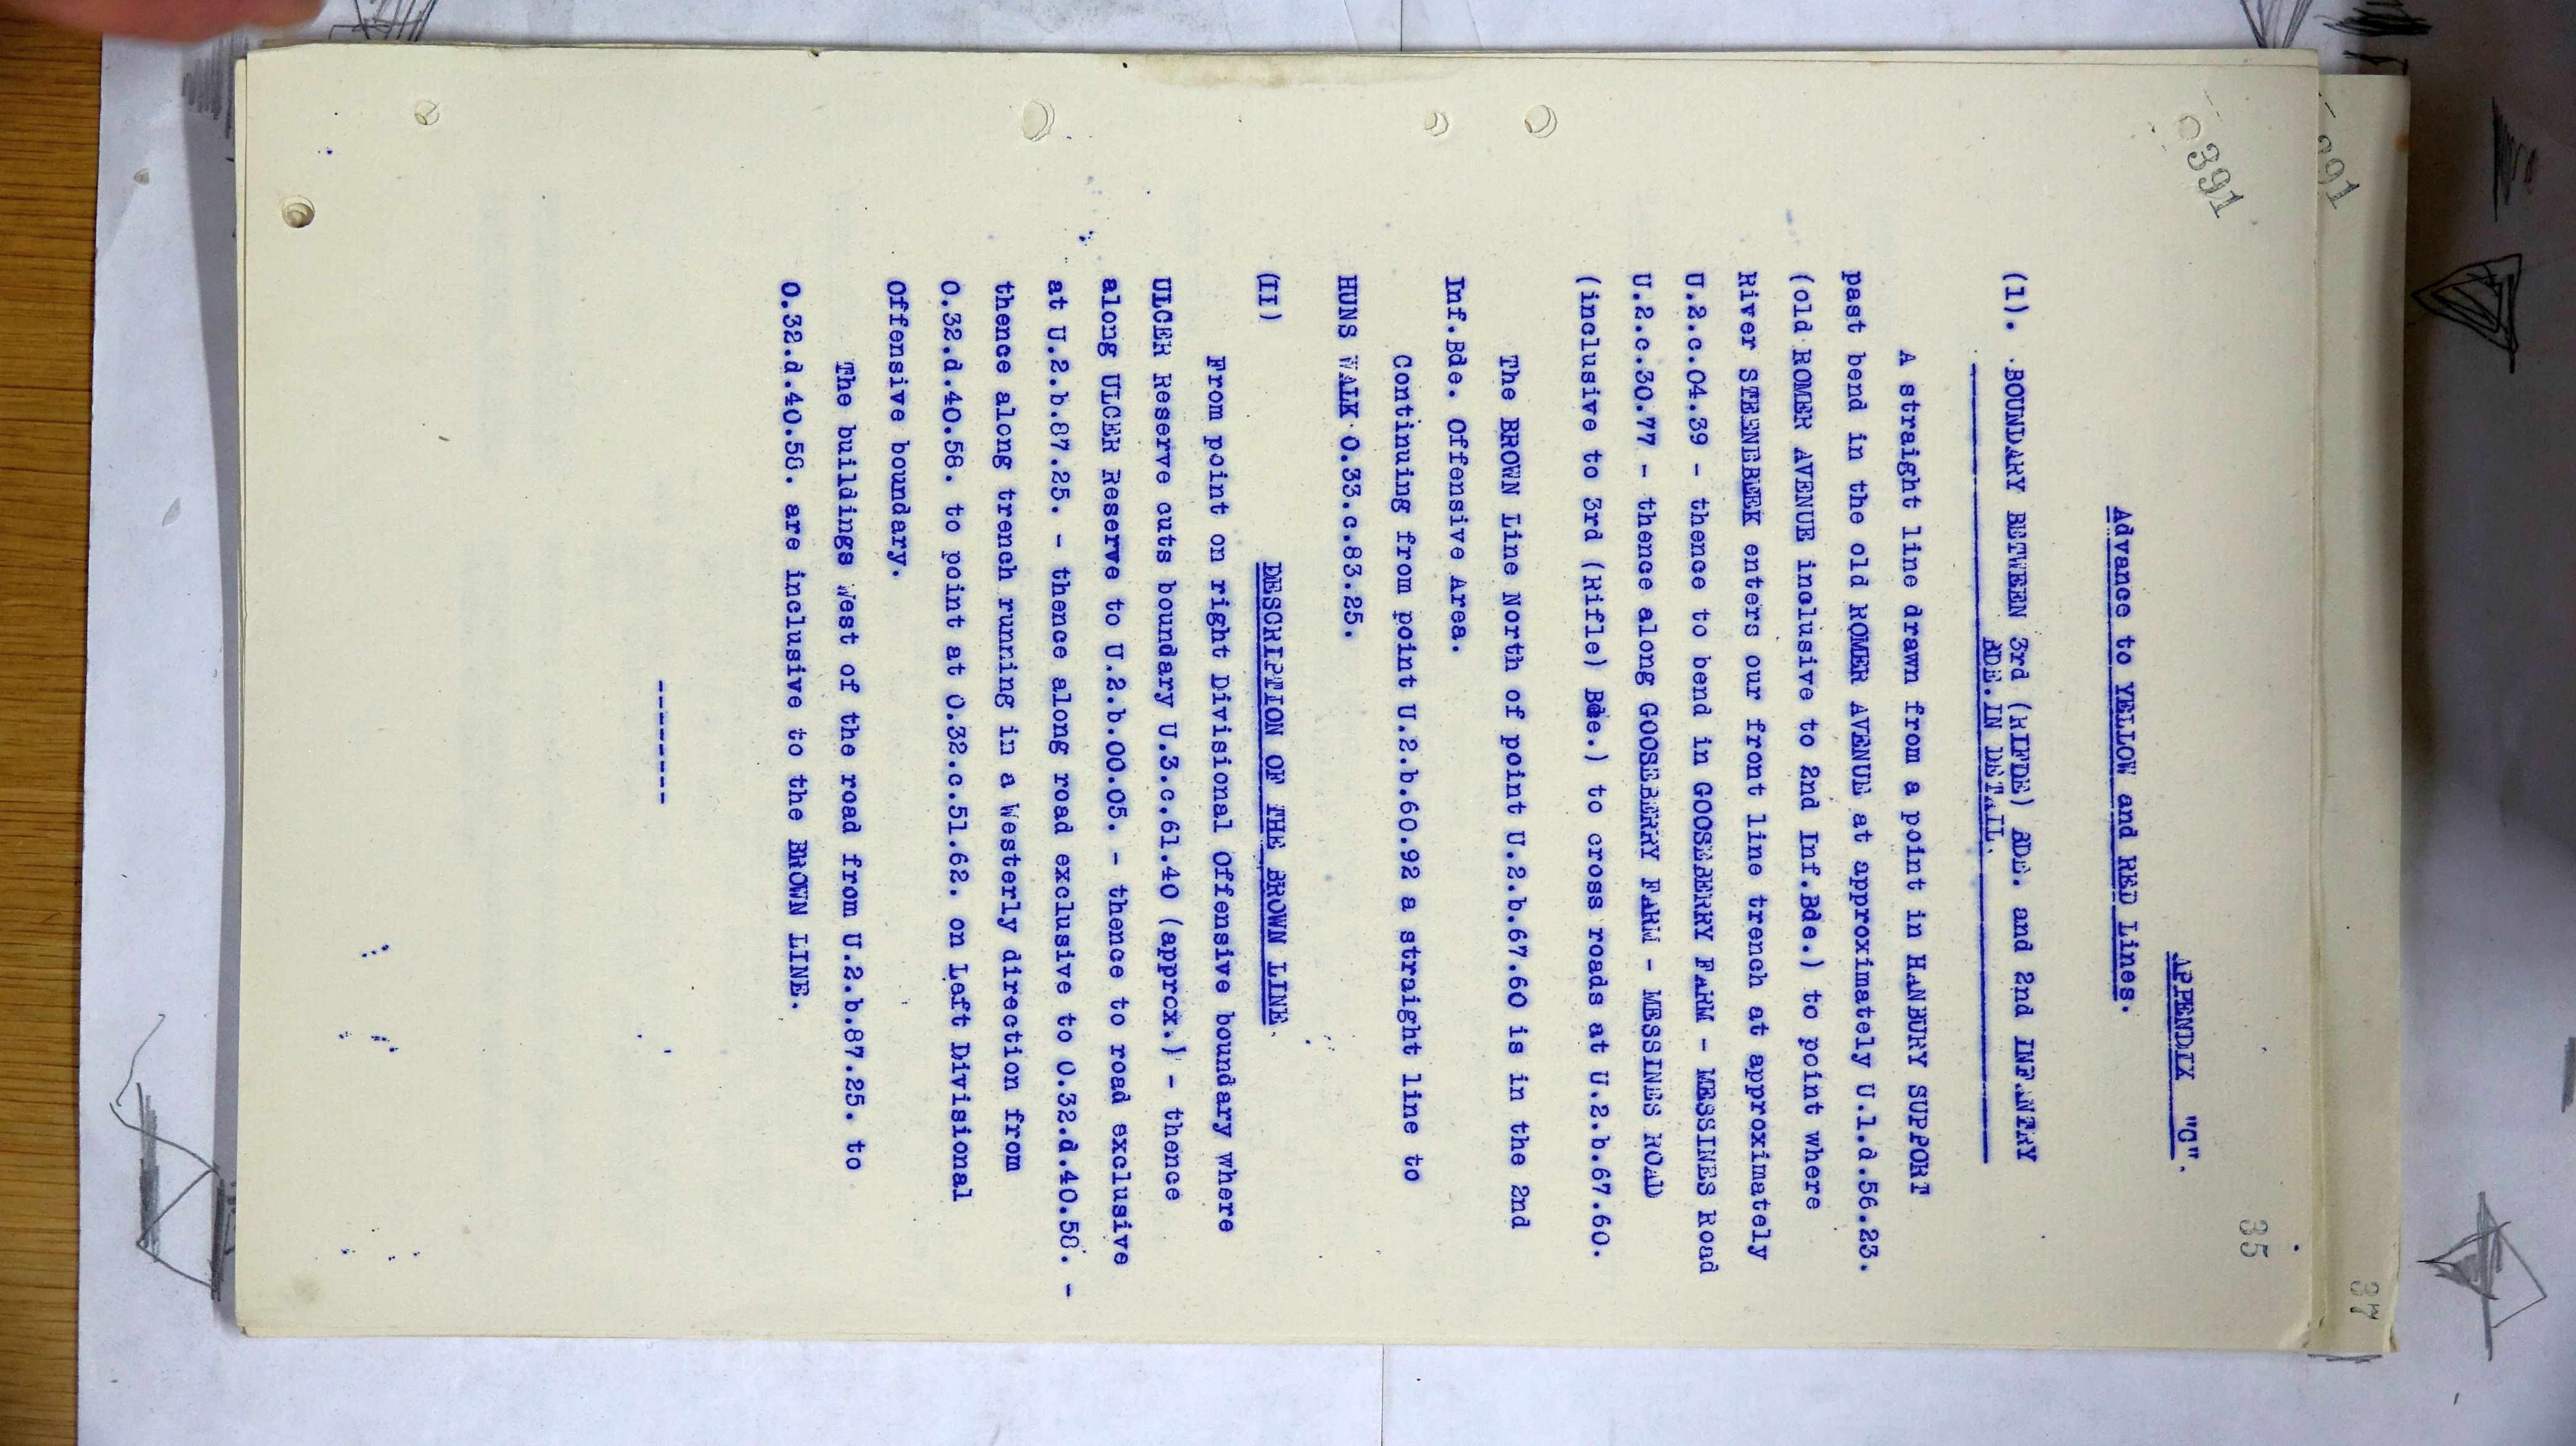 391
391
35
37
APPENDIX "C".
Advance to YELLOW and RED Lines.
(1). BOUNDARY BETWEEN 3rd (RIFDE) BDE. and 2nd INFANTRY
BDE.IN DETAIL.
A straight line drawn from a point in HANBURY SUPPORT
past bend in the old ROMER AVENUE at approximately U.1.d.56.23.
(old ROMER AVENUE inclusive to 2nd Inf.Bde.) to point where
River STEENEBEEK enters our front line trench at approximately
U.2.c.04.39 - thence to bend in GOOSEBERRY FARM - MESSINES Road
U.2.c.30.77 - thence along GOOSEBERRY FARM - MESSINES ROAD
(inclusive to 3rd (Rifle) Bde.) to cross roads at U.2.b.67.60.
The BROWN Line North of point U.2.b.67.60 is in the 2nd
Inf.Bde. Offensive Area.
Continuing from point U.2.b.60.92 a straight line to
HUNS WALK O.33.c.83.25.
(II) DESCRIPTION OF THE BROWN LINE.
From point on right Divisional Offensive boundary where
ULCER Reserve cuts boundary U.3.c.61.40 (approx.) - thence
along ULCER Reserve to U.2.b.00.05. - thence to road exclusive
at U.2.b.87.25. - thence along road exclusive to O.32.d.40.58. -
thence along trench running in a Westerly direction from
O.32.d.40.58. to point at O.32.c.51.62. on Left Divisional
Offensive boundary.
The buildings West of the road from U.2.b.87.25. to
O.32.d.40.58. are inclusive to the BROWN LINE.
-------